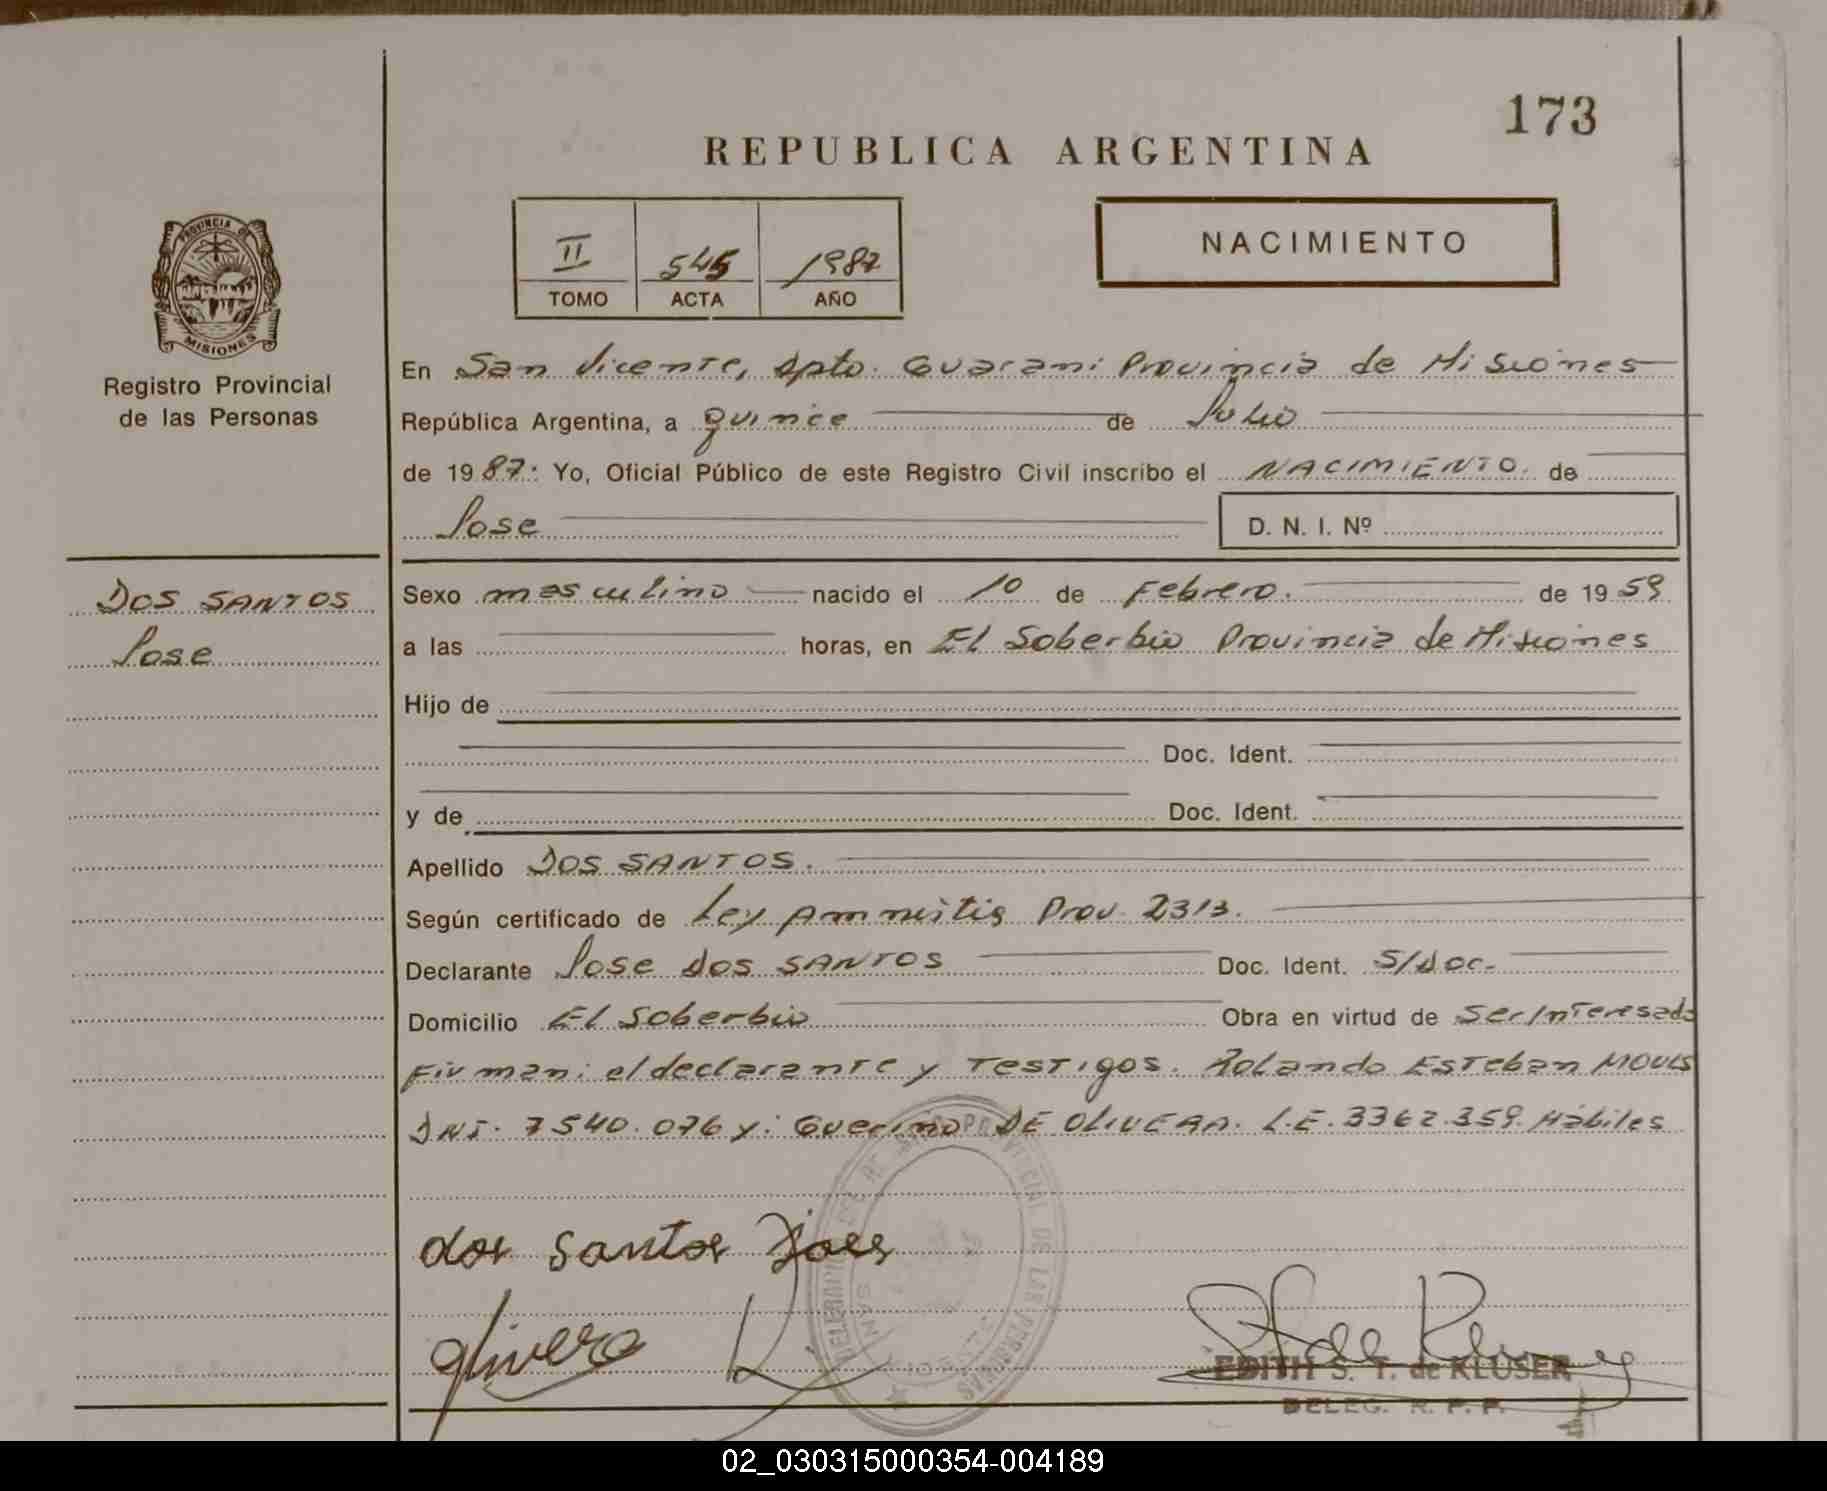 173
REPUBLICA ARGENTINA
II 545 1987
TOMO ACTA AÑO
NACIMIENTO
PROVINCIA DE
MISIONES
Registro Provincial
de las Personas
En San Vicente, dpto. Guarani Provincia de Misiones
República Argentina, a quince de Julio
de 1987: Yo, Oficial Público de este Registro Civil inscribo el NACIMIENTO. de
Jose D. N. I. Nº
DOS SANTOS
Jose
Sexo masculino nacido el 10 de Febrero. de 1959
a las horas, en El Soberbio Provincia de Misiones
Hijo de
Doc. Ident.
y de Doc. Ident.
Apellido DOS SANTOS.
Según certificado de Ley Amnistia Prov. 2313.
Declarante Jose dos SANTOS Doc. Ident. S/Doc.
Domicilio El Soberbio Obra en virtud de Ser Interesado
Firman: el declarante y Testigos. Rolando Esteban
DNI. 7540.076 y: Guerino DE OLIVERA. L.E. 3362.359. Hábiles
dos Santos Joes
Olivera
EDITH S. T. de KLUSER
DELEG. R. P. P.
02_030315000354-004189